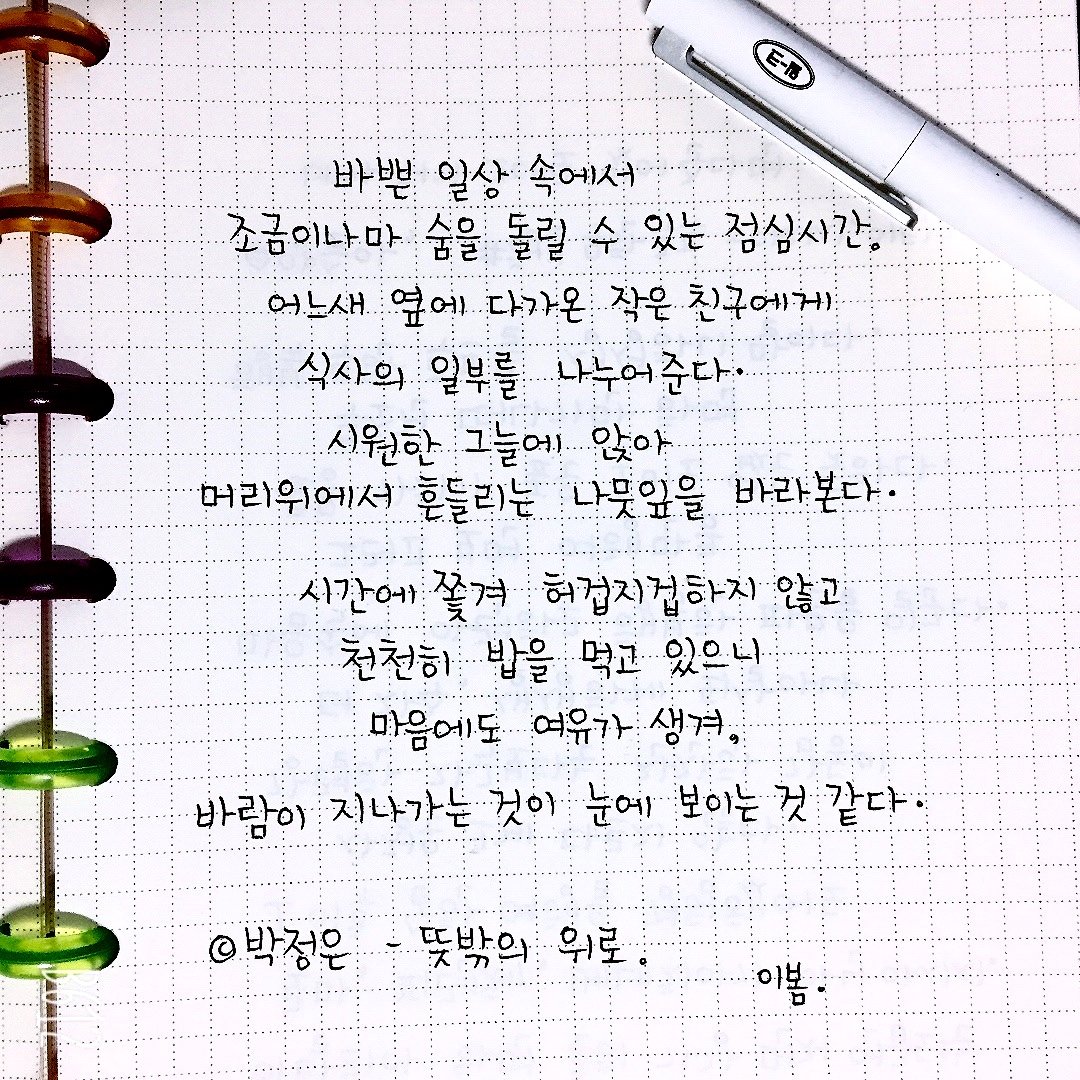 바쁜 일상 속에서
조금이나마 숨을 돌릴 수 있는 점심시간.
어느새 옆에 다가온 작은 친구에게
식사의 일부를 나누어준다.
시원한 그늘에 앉아
머리위에서 흔들리는 나뭇잎을 바라본다.
시간에 쫓겨 허겁지겁하지 않고
천천히 밥을 먹고 있으니
마음에도 여유가 생겨,
바람이 지나가는 것이 눈에 보이는 것 같다.
©박정은 - 뜻밖의 위로.
이봄.